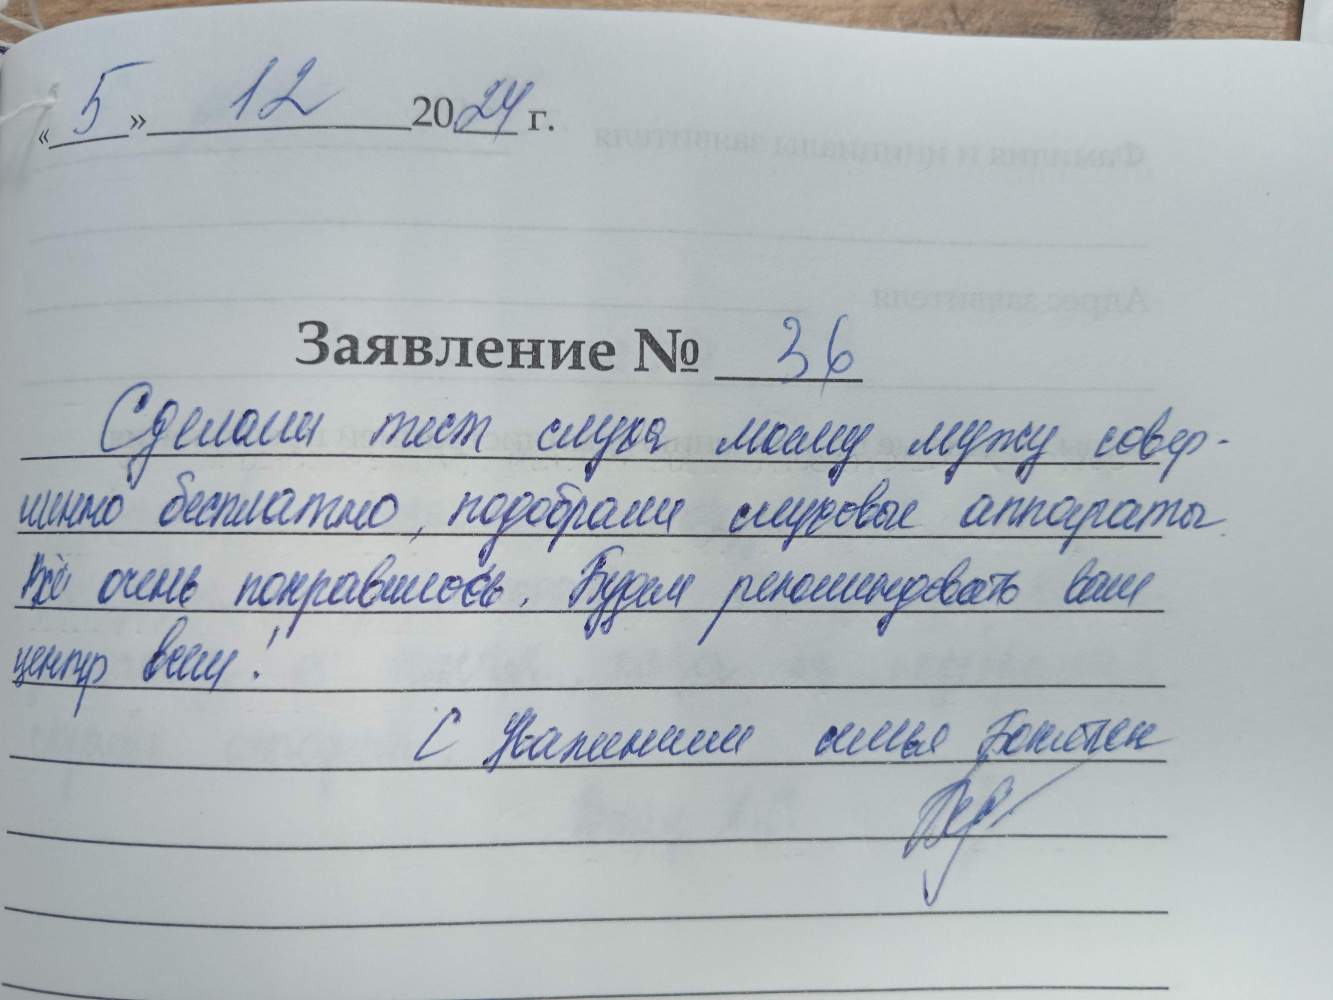 «5» 12 2024 г.
Заявление № 36
Сделали тест слуха моему мужу совер-
шенно бесплатно, подобрали слуховые аппараты.
Всё очень понравилось. Будем рекомендовать ваш
центр всем!
С Уважением семья